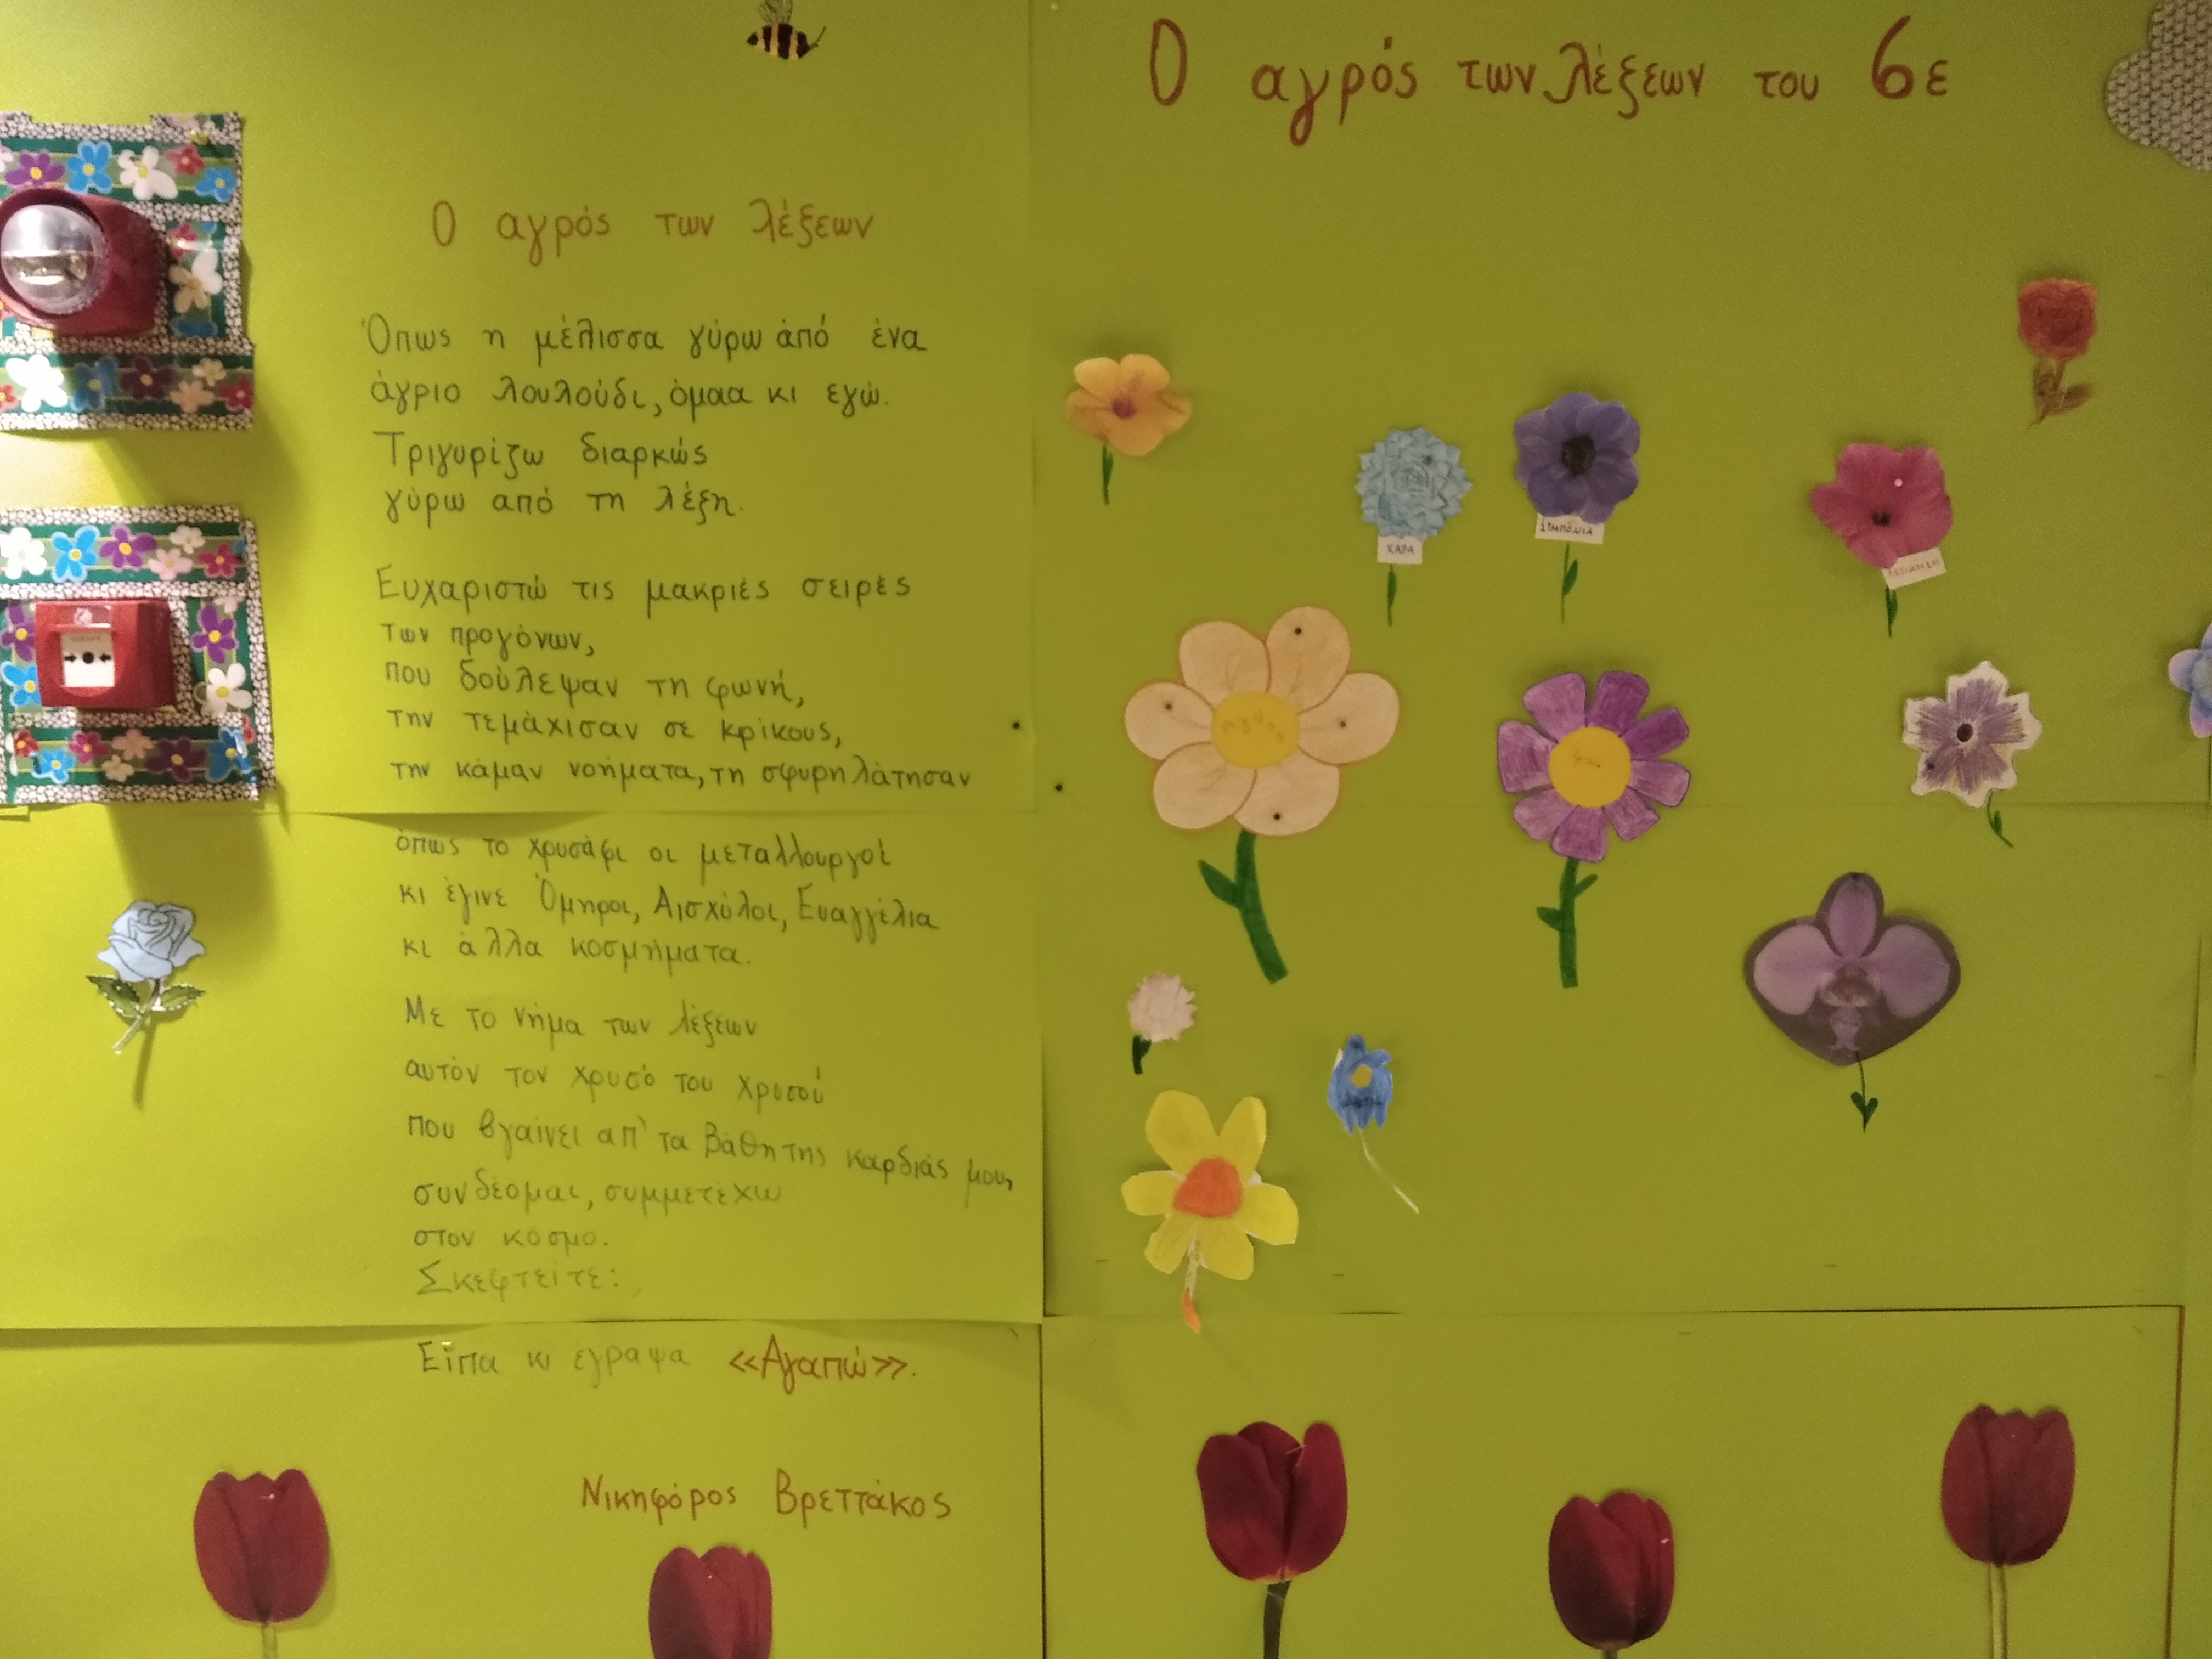 Ο αγρός των λέξεων του 6ε
Ο αγρός των λέξεων
Όπως η μέλισσα γύρω από ένα
άγριο λουλούδι, όμαα κι εγώ.
Τριγυρίζω διαρκώς
γύρω από τη λέξη.
Ευχαριστώ τις μακριές σειρές
των προγόνων,
που δούλεψαν τη φωνή,
την τεμάχισαν σε κρίκους,
την κάμαν νοήματα, τη σφυρηλάτησαν
όπως το χρυσάφι οι μεταλλουργοί
κι έγινε Όμηροι, Αισχύλοι, Ευαγγέλια
κι άλλα κοσμήματα.
Με το νήμα των λέξεων
αυτόν τον χρυσό του χρυσού
που βγαίνει απ' τα βάθη της καρδιάς μου,
συνδέομαι, συμμετέχω
στον κόσμο.
Σκεφτείτε:
Είπα κι έγραψα «Αγαπώ».
Νικηφόρος Βρεττάκος
ΧΑΡΑ
αγάπη